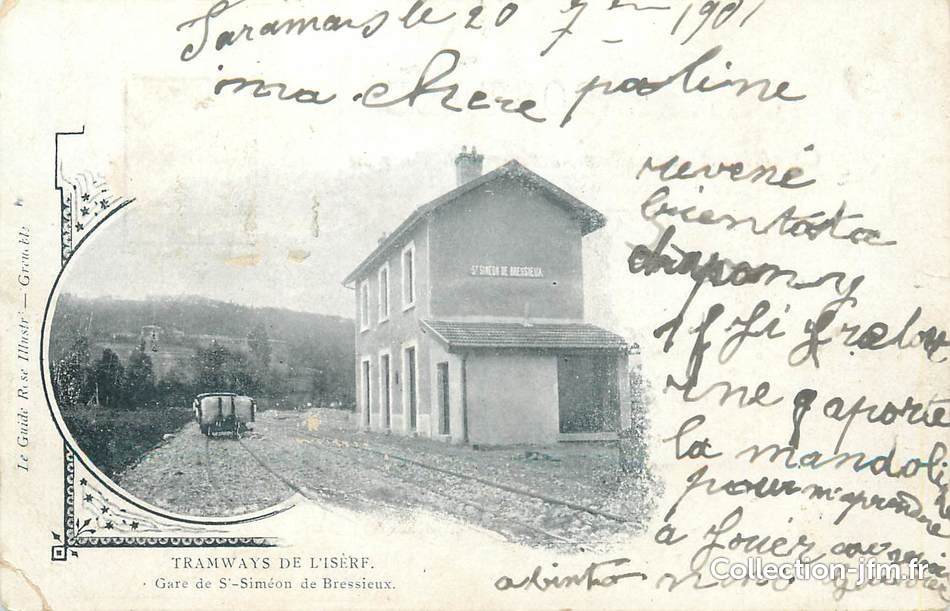 Faramans le 20 7bre 1901
ma chere poline
revené
bientôt a
chapony
if fi
une gaporte
la mandoli
pour m'aprendre
a Jouer
abintô
ST SIMEON DE BRESSIEUX
Le Guide Rose Illustré — Grenoble
TRAMWAYS DE L'ISÈRE.
Gare de St-Siméon de Bressieux.
Collection-jfm.fr